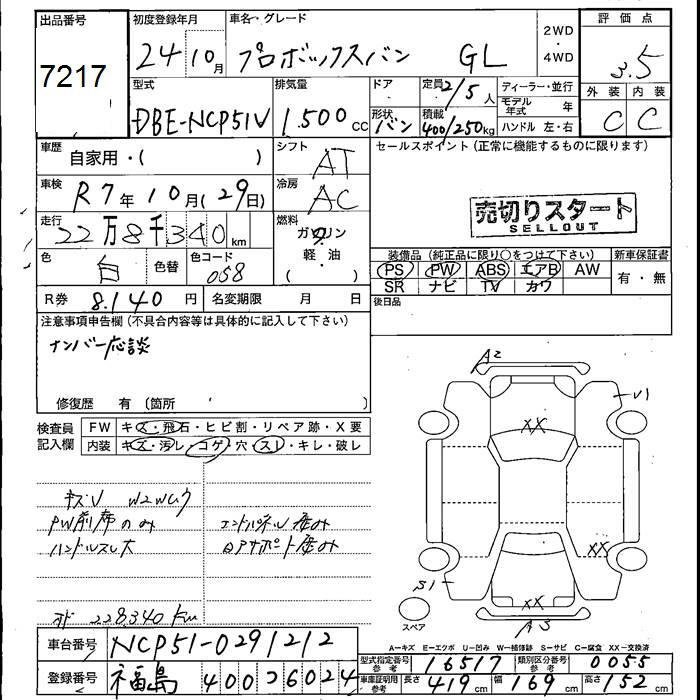 出品番号
7217
初度登録年月
24 10月
車名・グレード
プロボックスバン GL
2WD
・
4WD
評価点
3.5
型式
DBE-NCP51V
排気量
1,500cc
ドア
形状 バン
定員 2/5人
積載 400/250kg
ディーラー・並行
モデル年式 年
ハンドル 左・右
外装 内装
C C
車歴
自家用・( )
シフト
AT
セールスポイント(正常に機能するものに限ります)
車検
R7年10月(29日)
冷房
AC
売切りスタート
SELLOUT
走行
22万8千340km
燃料
ガソリン
軽・油
( )
色
白
色替
色コード
058
装備品(純正品に限り○をつけて下さい)
PS PW ABS エアB AW
SR ナビ TV カワ
新車保証書
有・無
R券 8.140円
名変期限 月 日
後日品
注意事項申告欄(不具合内容等は具体的に記入して下さい)
ナンバー応談
修復歴 有(箇所 )
検査員
記入欄
FW キズ・飛石・ヒビ割・リペア跡・X要
内装 キズ・汚レ・コゲ・穴・スレ・キレ・破レ
キズU
PW前席のみ
ハンドルスレ大
228.340km
A2
U1
XX
XX
S1
XX
A3
スペア
車台番号
NCP51-0291212
登録番号
福島 400
A=キズ E=エクボ U=凹み W=補修跡 S=サビ C=腐食 XX=交換済
型式指定番号 参考 16517
類別区分番号 参考 0055
車庫証明用 参考
長さ 419cm
幅 169cm
高さ 152cm